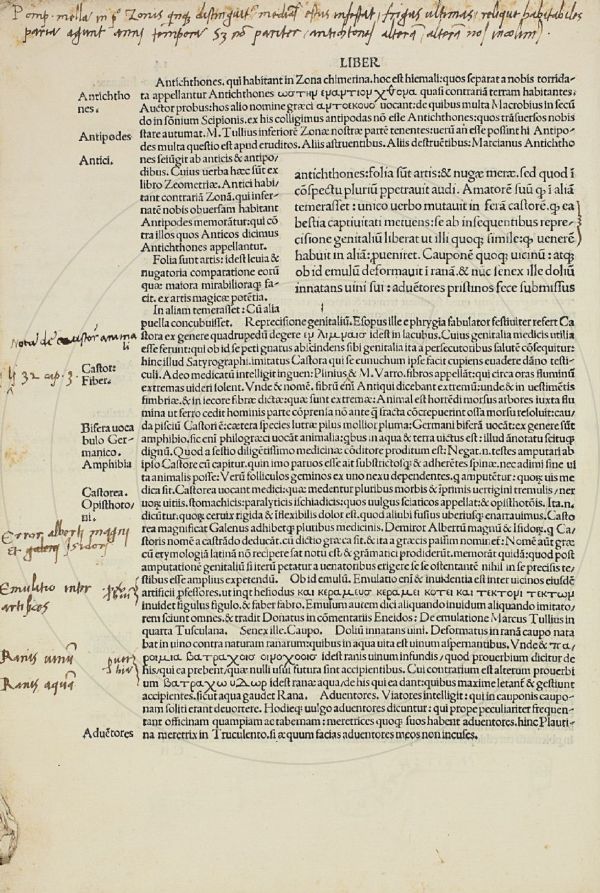 Pomp. mella in pº Zonis qnqꝫ distinguit mediā estus infestat, frigus ultimas, reliquę habitabiles
paria agunt anni tempora Sꝫ nō pariter, antichtones alterā, alterā nos incolim9.
LIBER
Antichthones. qui habitant in Zona chimerina. hoc est hiemali: quos separat a nobis torrida/
ta appellantur Antichthones quasi contrariā terram habitantes:
Antichtho
nes.
Auctor probus: hos alio nomine gręci αντοεκους uocant: de quibus multa Macrobius in secū
do in sōnium Scipionis. ex his colligimus antipodas nō esse Antichthones: quos trāsuersos nobis
Antipodes
state autumat. M. Tullius inferiorē Zonę nostrę partē tenentes: uerū an esse possint hi Antipo/
des multa questio est apud eruditos. Aliis astruentibus. Aliis destruētibus: Marcianus Antichtho
Antici.
nes seiūgit ab anticis & antipo/
dibus. Cuius uerba hęc sūt ex
libro Zeometrię. Antici habi/
tant contrariā Zonā. qui infer/
natē nobis obuersam habitant
Antipodes memorātur: qui cō
tra illos quos Anticos dicimus
Antichthones appellantur.
Folia sunt artis: idest leuia &
nugatoria comparatione eorū
quę maiora mirabilioraqꝫ fa/
cit. ex artis magicę potētia.
In aliam temerasset: Cū alia
antichthones: folia sūt artis: & nugæ meræ. sed quod ī
cōspectu pluriū ppetrauit audi. Amatorē suū ꝙ ī aliā
temerasset: unico uerbo mutauit in ferā castorē. ꝙ ea
bestia captiuitati metuens: se ab insequentibus repre/
cisione genitaliū liberat ut illi quoqꝫ simile: ꝙ uenerē
habuit in aliā: ꝓueniret. Cauponē quoqꝫ uicinū: atqꝫ
ob id emulū deformauit ī ranā. & nūc senex ille doliū
innatans uini sui: aduētores pristinos fęce submissus
puella concubuisset. Reprecisione genitaliū. Esopus ille e phrygia fabulator festiuiter refert Ca/
Nota de castor animali
stora ex genere quadrupedū degere εν λιμναισ idest in lacubus. Cuius genitalia medicis utilia
esse ferunt: qui ob id se peti gnarus abiicindens sibi genitalia ita a persecutoribus salutē cōsequitur:
hinc illud Satyrographi. imitatus Castora qui se eunuchum ipse facit cupiens euadere dāno testi/
li 32 cap. 3.
Castor:
culi. Adeo medicatū intelligit inguen: Plinius & M. Varro. fibros appellāt: qui circa oras fluminū
Fiber.
extremas uideri solent. Vnde & nomē. fibrū em̄ Antiqui dicebant extremū: unde & in uestimētis
fimbrię. & in iecore fibrę dictę: quę sunt extremę: Animal est horrēdi morsus arbores iuxta flu
mina ut ferro cedit hominis parte cōprensa nō ante ꝗ fracta cōcrepuerint ossa morsu resoluit: cau/
Bifera uoca
da pisciū Castori ē: cætera species lutrę pilus mollior pluma: Germani biferā uocāt: ex genere sūt
bulo Ger/
amphibio. sic em̄ philogræci uocāt animalia: qbus in aqua & terra uictus est: illud ānotatu scituqꝫ
manico.
dignū. Quod a sestio diligentissimo medicinæ cōditore proditum est: Negan.t. testes amputari ab
Amphibia
ipso Castore cū capitur. quin imo paruos esse ait substrictosqꝫ & adherētes spinæ. nec adimi sine ui
ta animalis posse: Verū folliculos geminos ex uno nexu dependentes. ꝙ amputētur: quorꝫ uis me
Castorea.
dica sit. Castorea uocant medici: quæ medentur pluribus morbis & ī primis uertigini tremulis / ner
Opisthoto/
uorꝫ uitiis. stomachicis: paralyticis ischiadicis: quos uulgus sciaticos appellat: & opisthotōis. Ita.n.
ni.
dicūtur. quorꝫ ceruix rigida & īflexibilis dolor est. quod aliubi fusius uberiusqꝫ enarrauimus. Casto
Error alberti magni
rea magnificat Galenus adhibetqꝫ pluribus medicinis. Demiror Albertū magnū & Isidorꝫ. ꝙ Ca
et Isidori
storis nomē a castrādo deducāt. cū dictio gręca sit. & ita a gręcis passim nomiēt: Nomē aūt gręc
cū etymologia latinā nō recipere sat notu est: & grāmatici prodiderūt. memorāt quidā: quod post
amputatione genitaliū si iterū petatur a uenatoribus erigere se se ostentantē nihil in se precisis te/
stibus esse amplius expetendū. Ob id emulū. Emulatio em̄ & inuidentia est inter uicinos eiusdē
Emulatio inter
artifices
artificii pfessores. ut inqt hesiodus και κεραμευσ κεραμει κοτει και τεκτονι τεκτων
inuidet figulus figulo. & faber fabro. Emulum autem dici aliquando inuidum aliquando imitato/
rem sciunt omnes. & tradit Donatus in cōmentariis Eneidos: De emulatione Marcus Tullius in
quarta Tusculana. Senex ille. Caupo. Doliū innatans uini. Deformatus in ranā caupo nata
bat in uino contra naturam ranarum: quibus in aqua uita est uinum aspernantibus. Vnde & πα/
Ranis uinū
ροιμια βατραχοισ οινοχοεισ idest ranis uinum infundis / quod prouerbium dicitur de
his: qui ea prebent. quæ nulli usui futura sunt accipientibus. Cui contrarium est alterum prouerbi
Ranis aquā
um βατραχω υδωρ idest ranæ aquā / de his qui ea dant: quibus maxime lętant̄ & gestiunt
accipientes. sicut aqua gaudet Rana. Aduentores. Viatores intelligit: qui in cauponis caupo/
nam soliti erant deuortere. Hodieqꝫ uulgo aduentores dicuntur: qui prope peculiariter frequen/
tant officinam quampiam ac tabernam: meretrices quoqꝫ suos habent aduentores. hinc Plauti/
Aduētores
na meretrix in Truculento. si æquum facias aduentores meos non incuses.